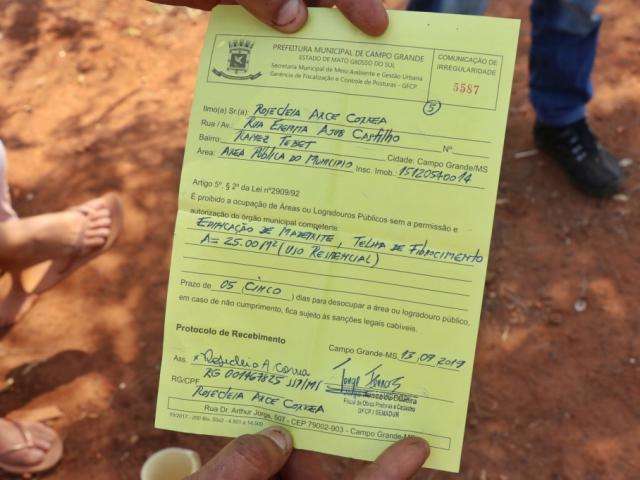 PREFEITURA MUNICIPAL DE CAMPO GRANDE
ESTADO DE MATO GROSSO DO SUL
Secretaria Municipal de Meio Ambiente e Gestão Urbana
Gerência de Fiscalização e Controle de Posturas - GFCP
COMUNICAÇÃO DE
IRREGULARIDADE
5587
5
Ilmo(a) Sr.(a): ROSECLEIA ARCE CORREA
Rua / Av.: RUA Castilho Nº
Bairro: RAMEZ TEBET Cidade: Campo Grande/MS
Área: AREA PÚBLICA DO MUNICIPIO Insc. Imob.: 15120540014
Artigo 5º, § 2º da Lei nº2909/92
É proibido a ocupação de Áreas ou Logradouros Públicos sem a permissão e
autorização do órgão municipal competente.
EDIFICAÇÃO DE MADEIRITE, TELHA DE FIBROCIMENTO
A= 25.00 M² (USO RESIDENCIAL)
Prazo de 05 CINCO dias para desocupar a área ou logradouro público,
em caso de não cumprimento, fica sujeito às sanções legais cabíveis.
Protocolo de Recebimento
Campo Grande-MS 13,09 2017
Ass. x Rosecleia A Correa
RG 001467825 SSP/MS
RG/CPF
ROSECLEIA ARCE CORREA
Fiscal de Obras Posturas e Cadastro
GFCP / SEMADUR
Rua Dr. Arthur Jorge, 507 - CEP 79002-903 - Campo Grande-MS